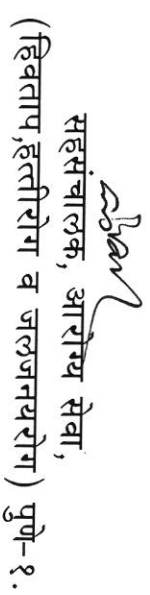 सहसंचालक, आरोग्य सेवा,
(हिवताप,हत्तीरोग व जलजनयरोग) पुणे-१.